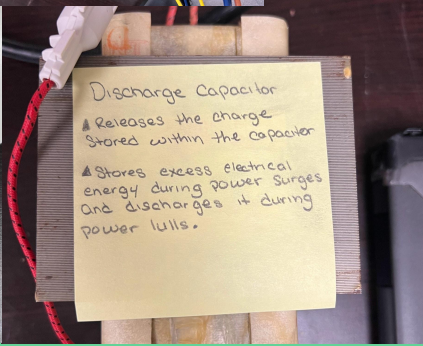 Discharge Capacitor
▲ Releases the charge
stored within the capacitor
▲ Stores excess electrical
energy during power surges
and discharges it during
power lulls.